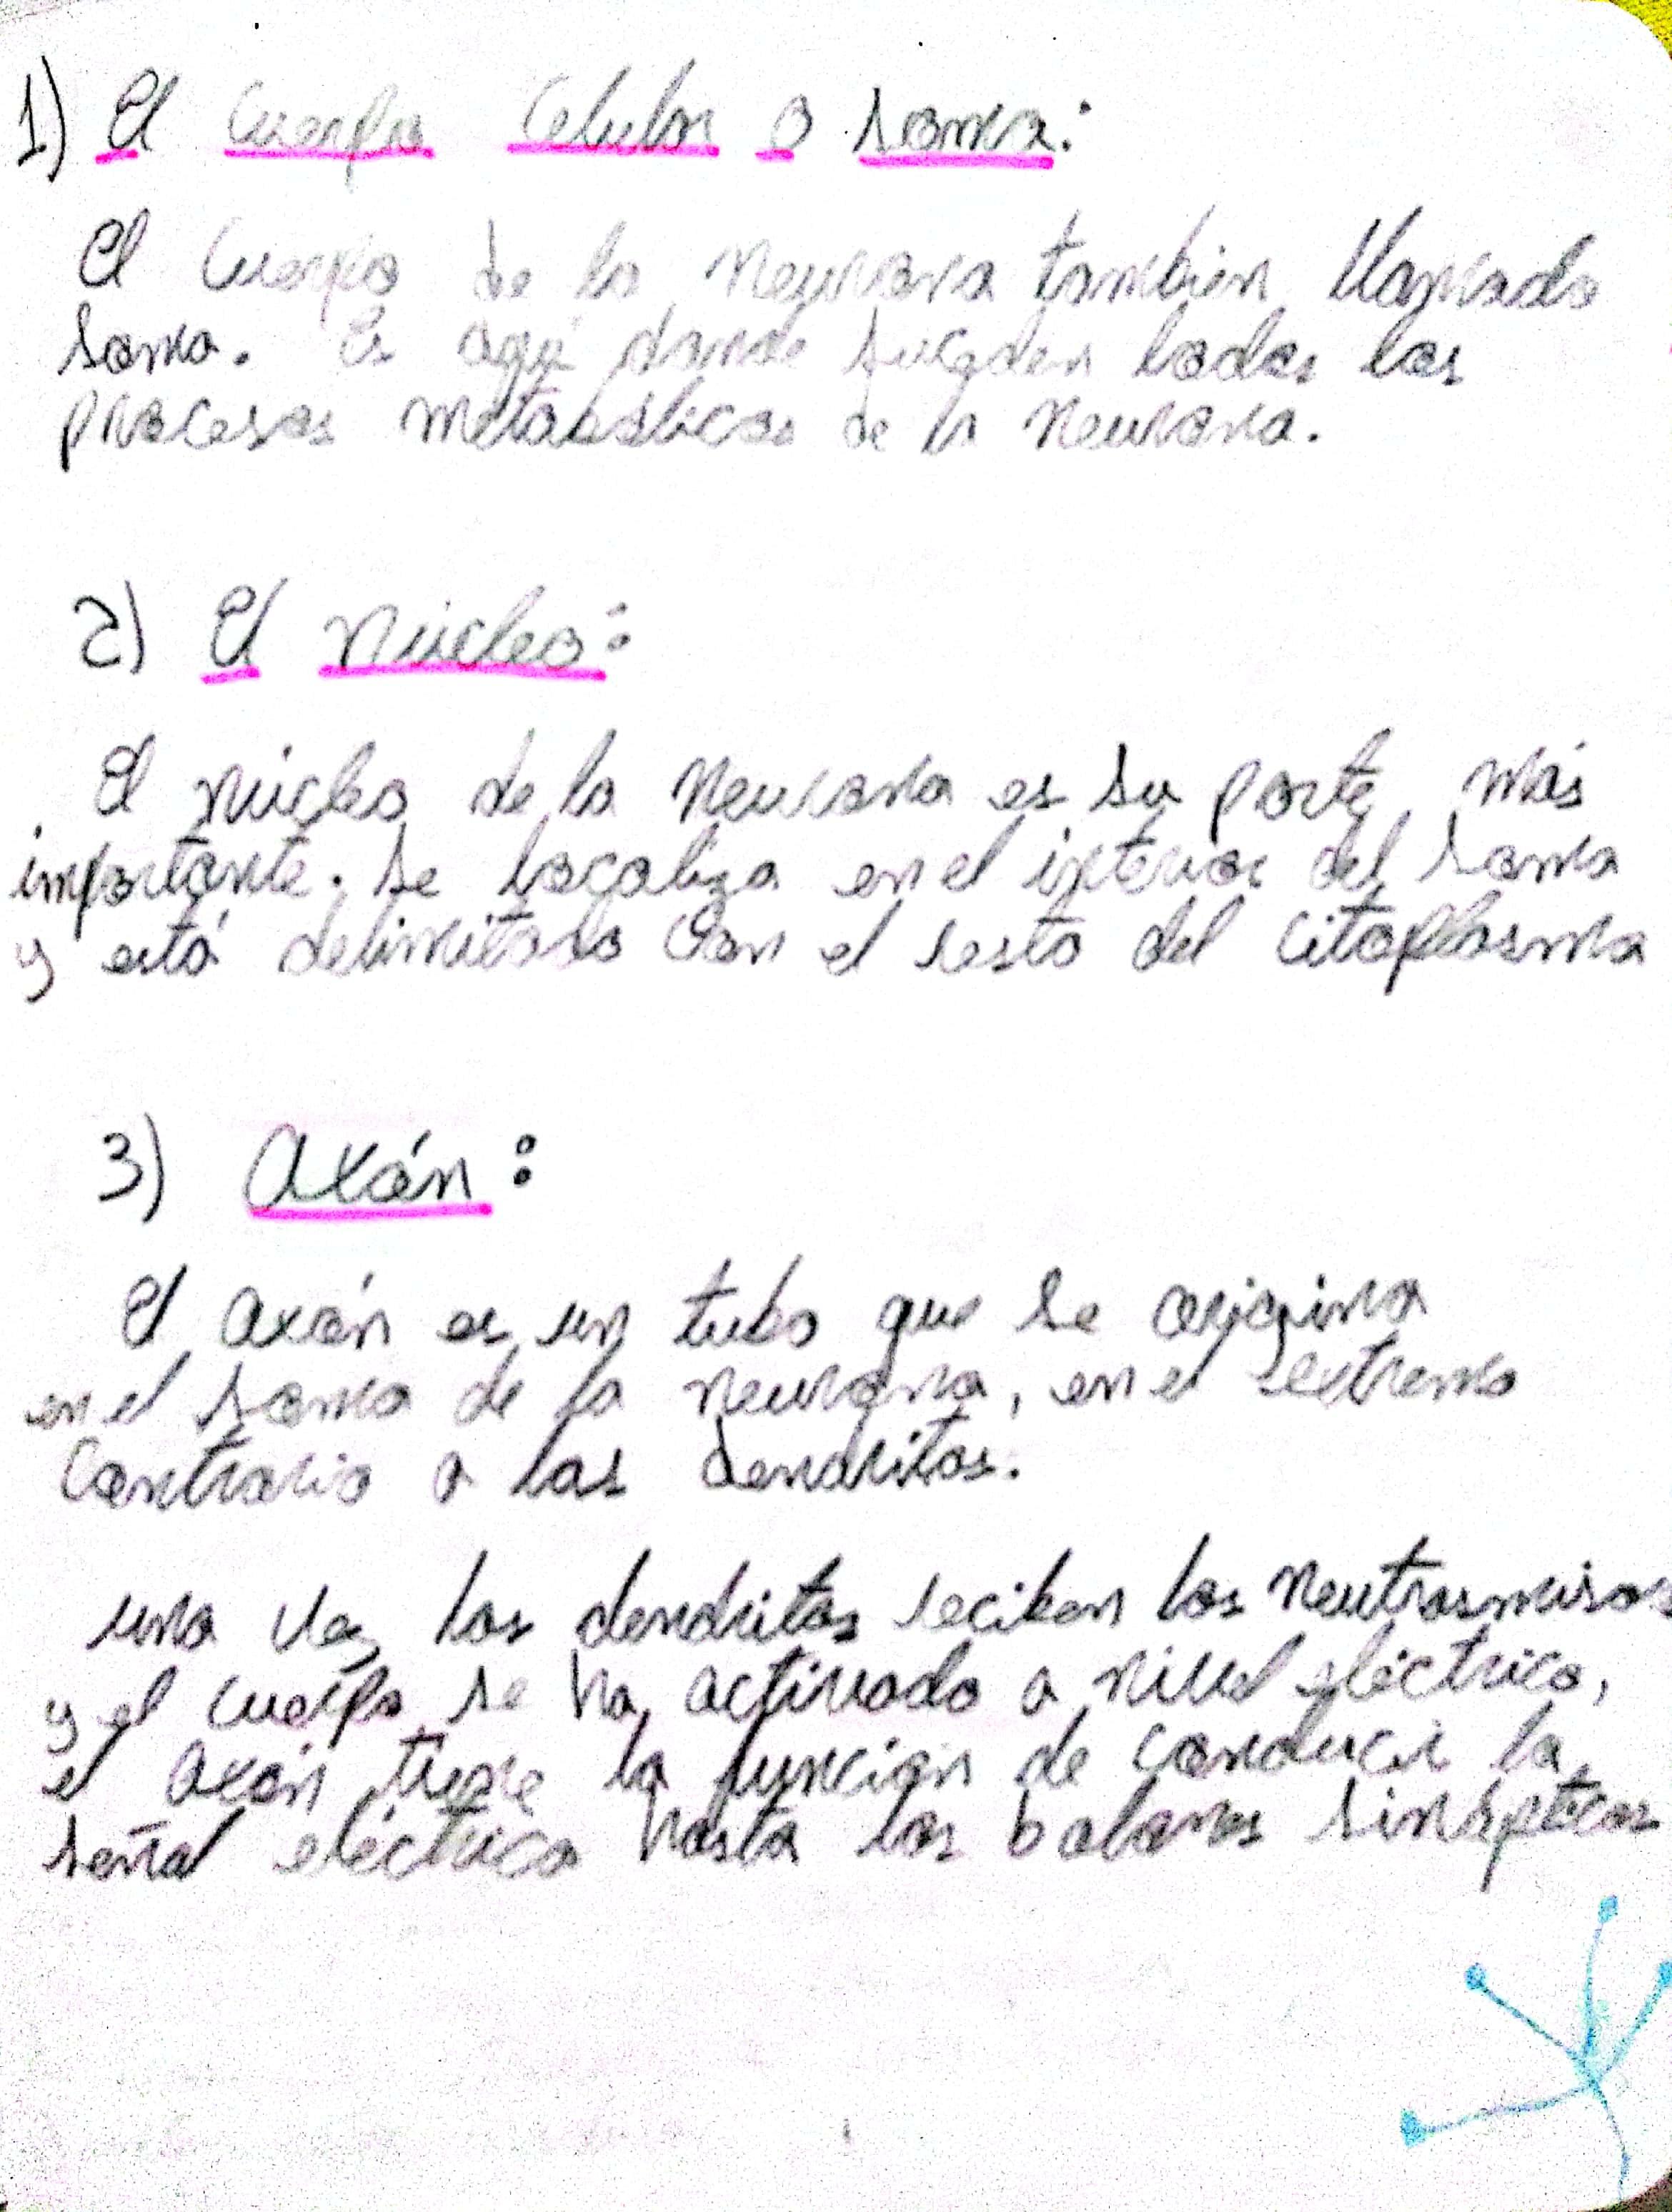 1) El Cuerpo Celular o soma:
El Cuerpo de la neurona también llamado
soma. Es aquí donde suceden todos los
procesos metabólicos de la neurona.
2) El núcleo:
El núcleo de la neurona es su parte más
importante. se localiza en el interior del soma
y está delimitado con el resto del citoplasma
3) Axón:
El axón es un tubo que se origina
en el soma de la neurona, en el extremo
Contrario a las dendritas.
una vez las dendritas reciben los neutrasmisos
y el cuerpo se ha activado a nivel eléctrico,
el axón tiene la función de conducir la
señal eléctrica hasta los botones sinápticos